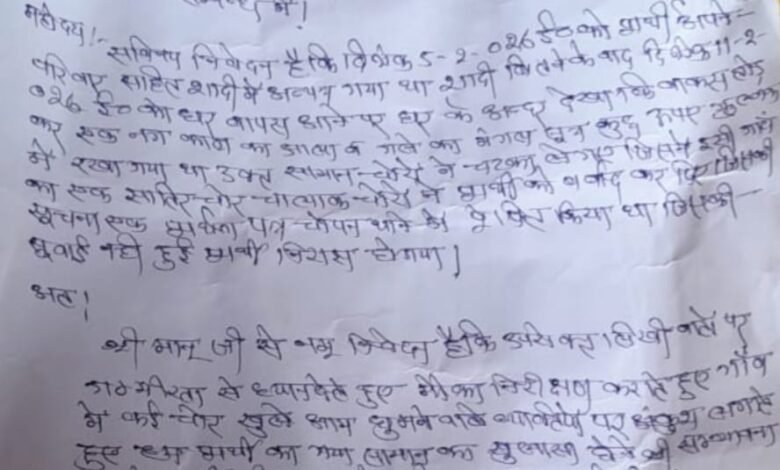 में!
महोदय!-
सविनय निवेदन है कि दिनांक 5-2-026 ई० को प्रार्थी अपने-
परिवार सहित शादी में अन्यत्र गया था शादी बितने के बाद दिनांक 11-2-
026 ई० को घर वापस आने पर घर के अन्दर देखा कि बाकस तोड़
कर एक नग कान का झाला व गले का मंगल सूत्र कुछ रूपए
में रखा गया था उक्त सामान-चोरों ने-चटका ले गए जिसमें इसी गाँव
का एक सातिर-चोर-चालाक-चोरों ने प्रार्थी को बर्बाद कर दिए जिसकी
सूचना एक प्रार्थना पत्र चोपन थाने में प्रेषित किया था जिसकी-
सुनवाई नही हुई प्रार्थी निरास होगया|
अतः!
श्री मान् जी से नम्र निवेदन है कि उपरोक्त लिखी बातों पर
गम्भीरता से ध्यान देते हुए मौका निरीक्षण करते हुए गाँव
में कई चोर खुले आम घुमने वाले व्यक्तियों पर अंकुश लगाते
हुए हम प्रार्थी का गया सामान का खुलासा होने की सम्भावना